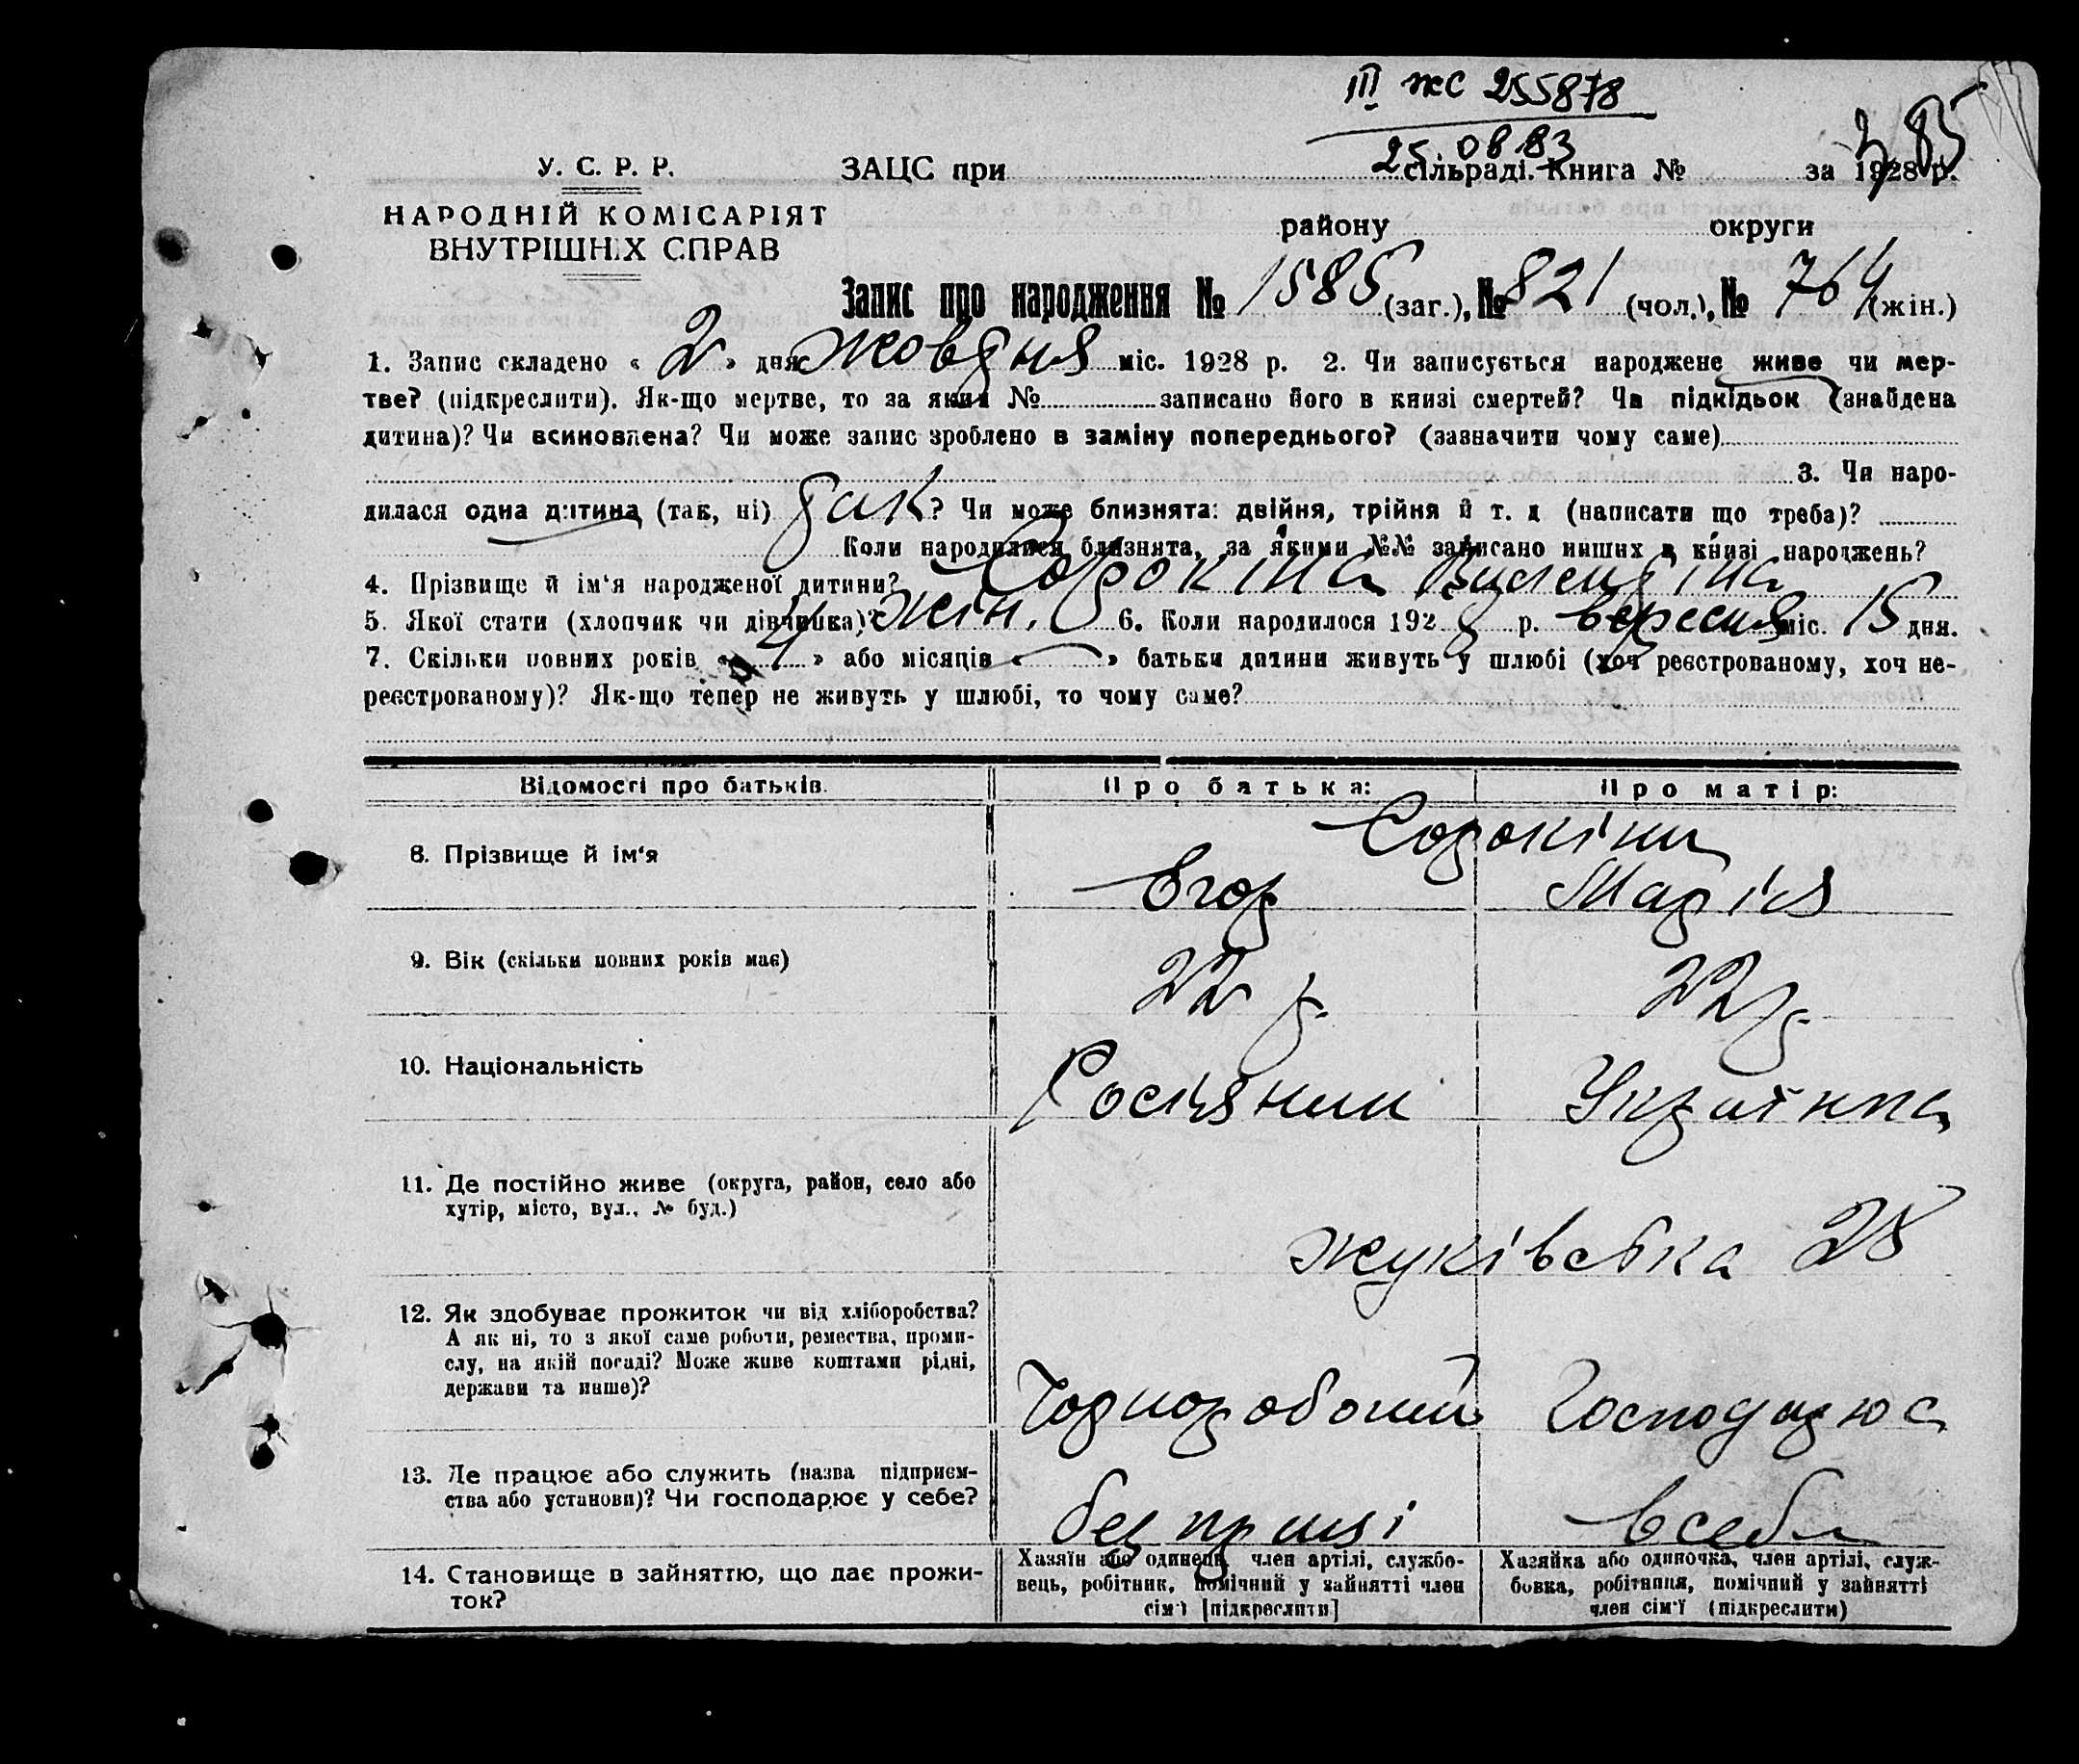 III жс 255878
25.08.83
485
У. С. Р. Р.
ЗАЦС при сільраді. Книга № за 1928 р.
НАРОДНІЙ КОМІСАРІЯТ
ВНУТРІШНІХ СПРАВ
району округи
Запис про народження № 1585 (заг.), № 821 (чол.), № 764 (жін.)
1. Запис складено « 2 » дня жовтня міс. 1928 р. 2. Чи записується народжене живе чи мер-
тве? (підкреслити). Як-що мертве, то за яким № записано його в книзі смертей? Чи підкідьок (знайдена
дитина)? Чи всиновлена? Чи може запис зроблено в заміну попереднього? (зазначити чому саме)
3. Чи наро-
дилася одна дитина (так, ні) так? Чи може близнята: двійня, трійня й т. д (написати що треба)?
Коли народилися близнята, за якими №№ записано инших в книзі народжень?
4. Прізвище й ім'я народженої дитини? Сорокіна Валентіна
5. Якої стати (хлопчик чи дівчинка)? жін. 6. Коли народилося 1928 р. вересня міс. 15 дня.
7. Скільки повних років « » або місяців « — » батьки дитини живуть у шлюбі (хоч реєстрованому, хоч не-
реєстрованому)? Як-що тепер не живуть у шлюбі, то чому саме?
Відомості про батьків. Про батька: Про матір:
Сорокіни
8. Прізвище й ім'я Егор Марія
9. Вік (скільки повних років має) 22 р. 22 р.
10. Національність Росіянин Українка
11. Де постійно живе (округа, район, село або
хутір, місто, вул., № буд.)
Жуківська 28
12. Як здобуває прожиток чи від хліборобства?
А як ні, то з якої саме роботи, ремества, проми-
слу, на якій посаді? Може живе коштами рідні,
держави та инше)?
Чорноробочий Господарює
13. Де працює або служить (назва підприєм-
ства або установи)? Чи господарює у себе?
без праці в себе
14. Становище в зайняттю, що дає прожи-
ток?
Хазяїн або одинець, член артілі, службо-
вець, робітник, помічний у зайнятті член
сім'ї [підкреслити]
Хазяйка або одиночка, член артілі, служ-
бовка, робітниця, помічний у зайнятті
член сім'ї (підкреслити)